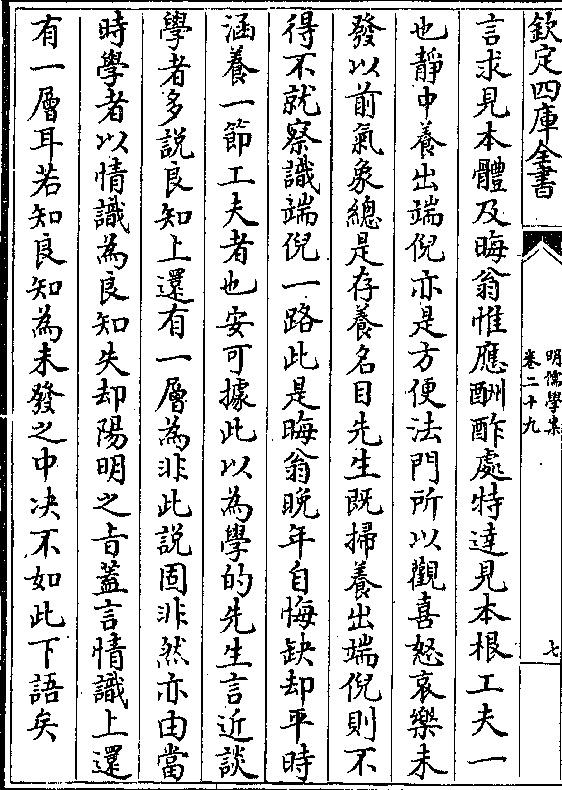 欽定四庫全書
明儒學案
卷二十九
七
言求見本體及晦翁惟應酬酢處特達見本根工夫一
也靜中養出端倪亦是方便法門所以觀喜怒哀樂未
發以前氣象總是存養名目先生既掃養出端倪則不
得不就察識端倪一路此是晦翁晚年自悔缺却平時
涵養一節工夫者也安可據此以為學的先生言近談
學者多說良知上還有一層為非此說固非然亦由當
時學者以情識為良知失却陽明之旨蓋言情識上還
有一層耳若知良知為未發之中決不如此下語矣